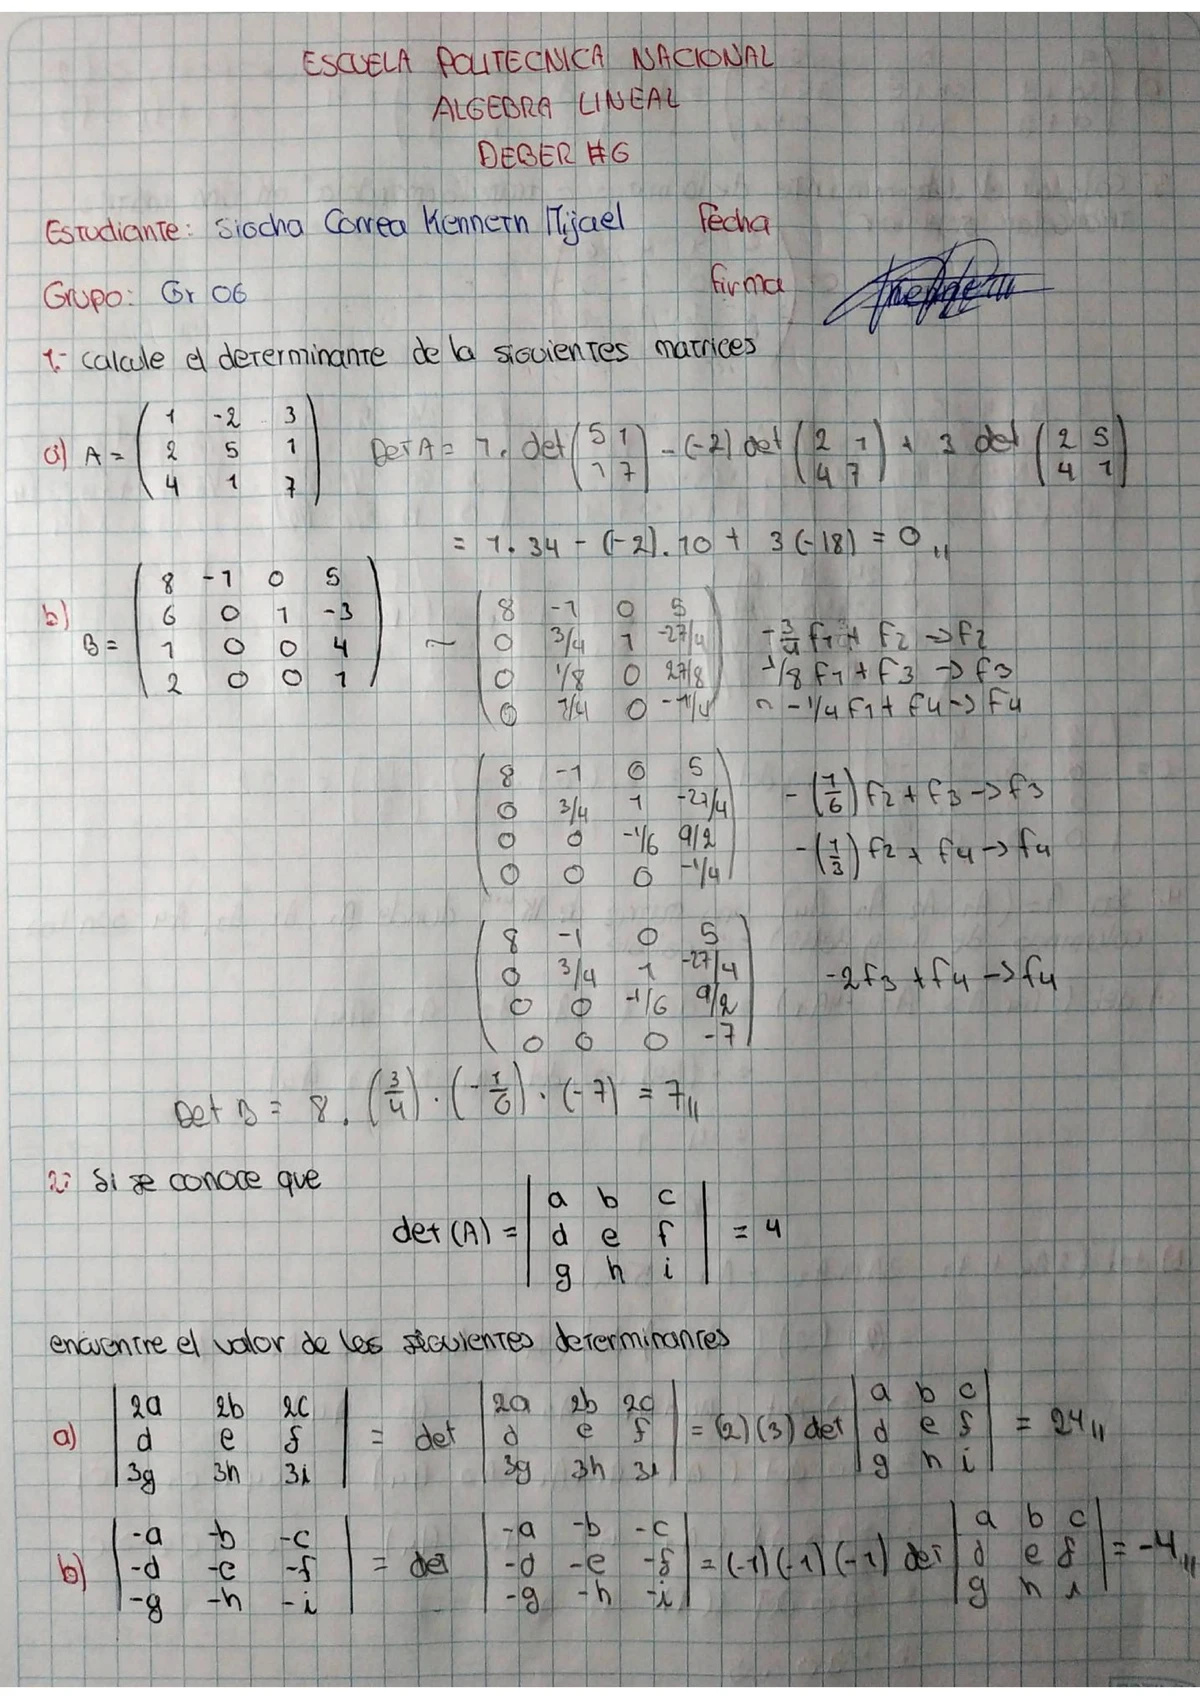 ESCUELA POLITECNICA NACIONAL
ALGEBRA LINEAL
DEBER #6
Estudiante: Siocha Correa Kenneth Mijael Fecha
Grupo: Gr 06 firma
1.- calcule el determinante de la siguientes matrices
a) A = ( 1 -2 3 ; 2 5 1 ; 4 1 7 ) Det A = 1. det ( 5 1 ; 1 7 ) - (-2) det ( 2 1 ; 4 7 ) + 3 det ( 2 5 ; 4 1 )
= 1.34 - (-2).10 + 3(-18) = 0,,
b) B = ( 8 -1 0 5 ; 6 0 1 -3 ; 1 0 0 4 ; 2 0 0 1 ) ~ ( 8 -1 0 5 ; 0 3/4 1 -27/4 ; 0 1/8 0 27/8 ; 0 1/4 0 -1/4 )
-3/4 f1 + f2 -> f2
-1/8 f1 + f3 -> f3
~ -1/4 f1 + f4 -> f4
( 8 -1 0 5 ; 0 3/4 1 -27/4 ; 0 0 -1/6 9/2 ; 0 0 0 -1/4 )
-(1/6) f2 + f3 -> f3
-(1/3) f2 + f4 -> f4
( 8 -1 0 5 ; 0 3/4 1 -27/4 ; 0 0 -1/6 9/2 ; 0 0 0 -7 ) -2f3 + f4 -> f4
Det B = 8 . (3/4) . (-1/6) . (-7) = 7,,
2.- Si se conoce que
det (A) = | a b c ; d e f ; g h i | = 4
encuentre el valor de los siguientes determinantes
a) | 2a 2b 2c ; d e f ; 3g 3h 3i | = det | 2a 2b 2c ; d e f ; 3g 3h 3i | = (2)(3) det | a b c ; d e f ; g h i | = 24,,
b) | -a -b -c ; -d -e -f ; -g -h -i | = det | -a -b -c ; -d -e -f ; -g -h -i | = (-1)(-1)(-1) det | a b c ; d e f ; g h i | = -4,,